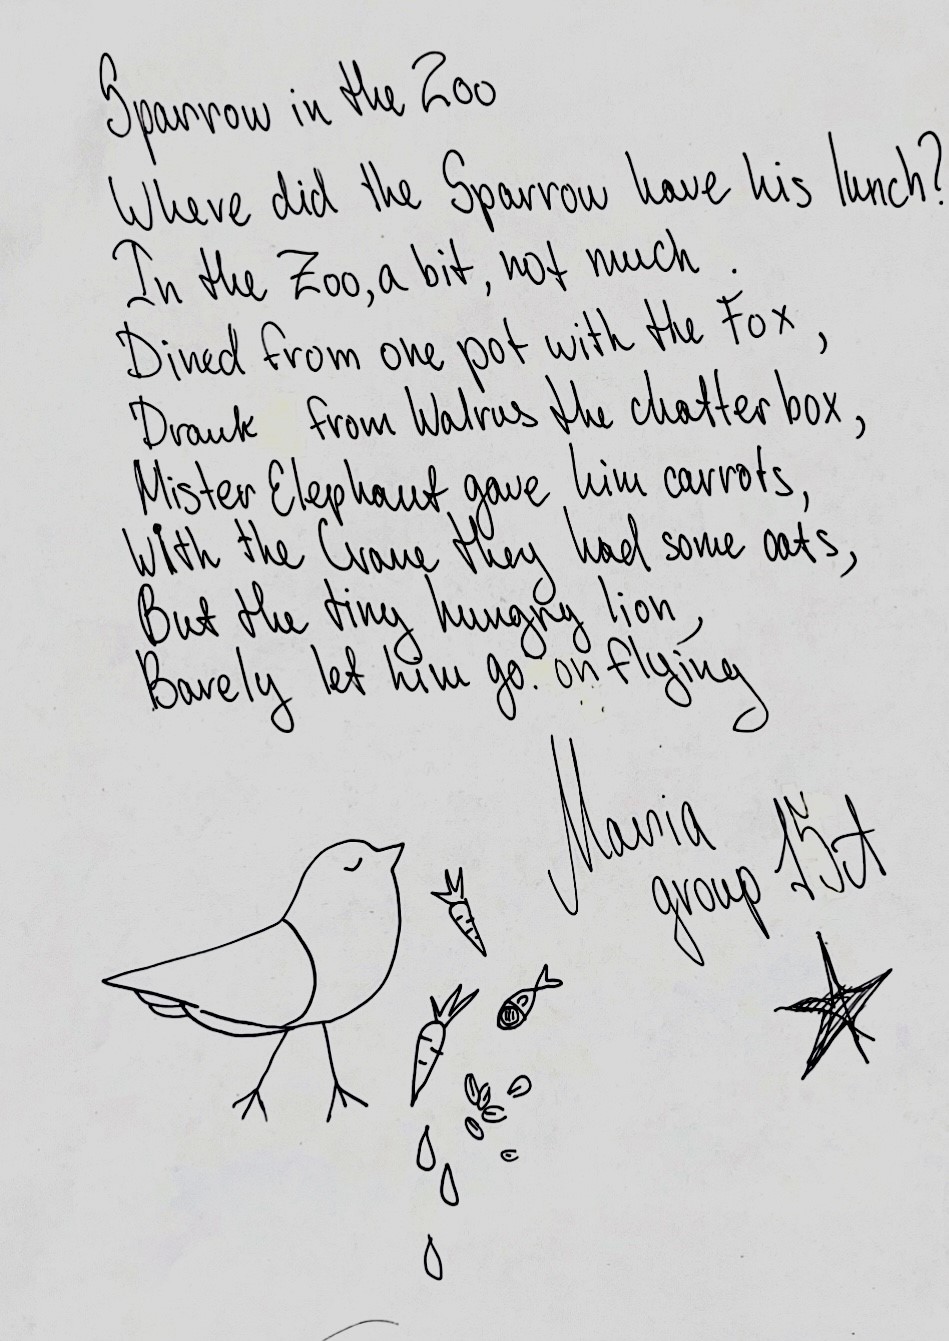 Sparrow in the Zoo
Where did the Sparrow have his lunch?
In the Zoo, a bit, not much.
Dined from one pot with the Fox,
Drank from Walrus the chatter box,
Mister Elephant gave him carrots,
With the Crane they had some oats,
But the tiny hungry lion,
Barely let him go. on flying
Maria
group 15A